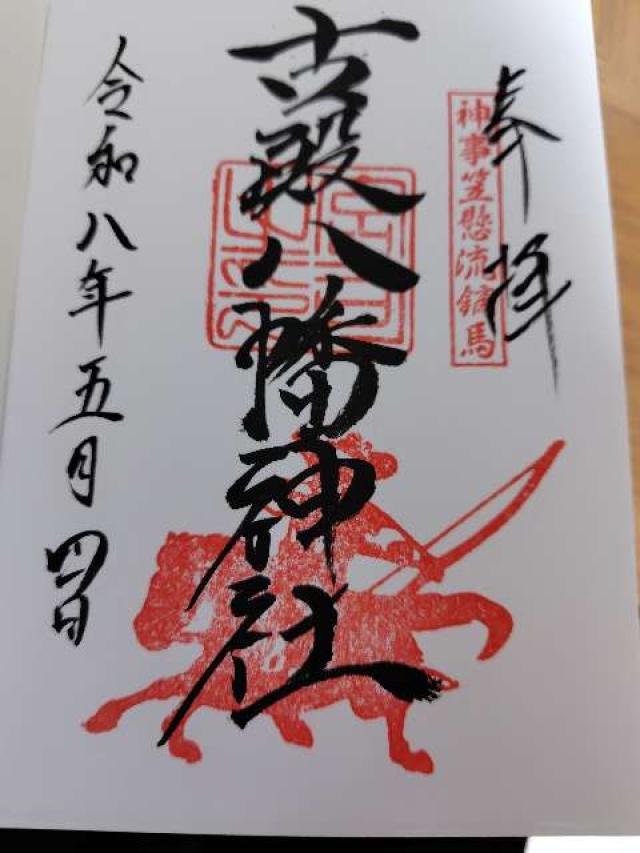 奉拝
神事笠懸流鏑馬
古殿八幡神社
令和八年五月四日